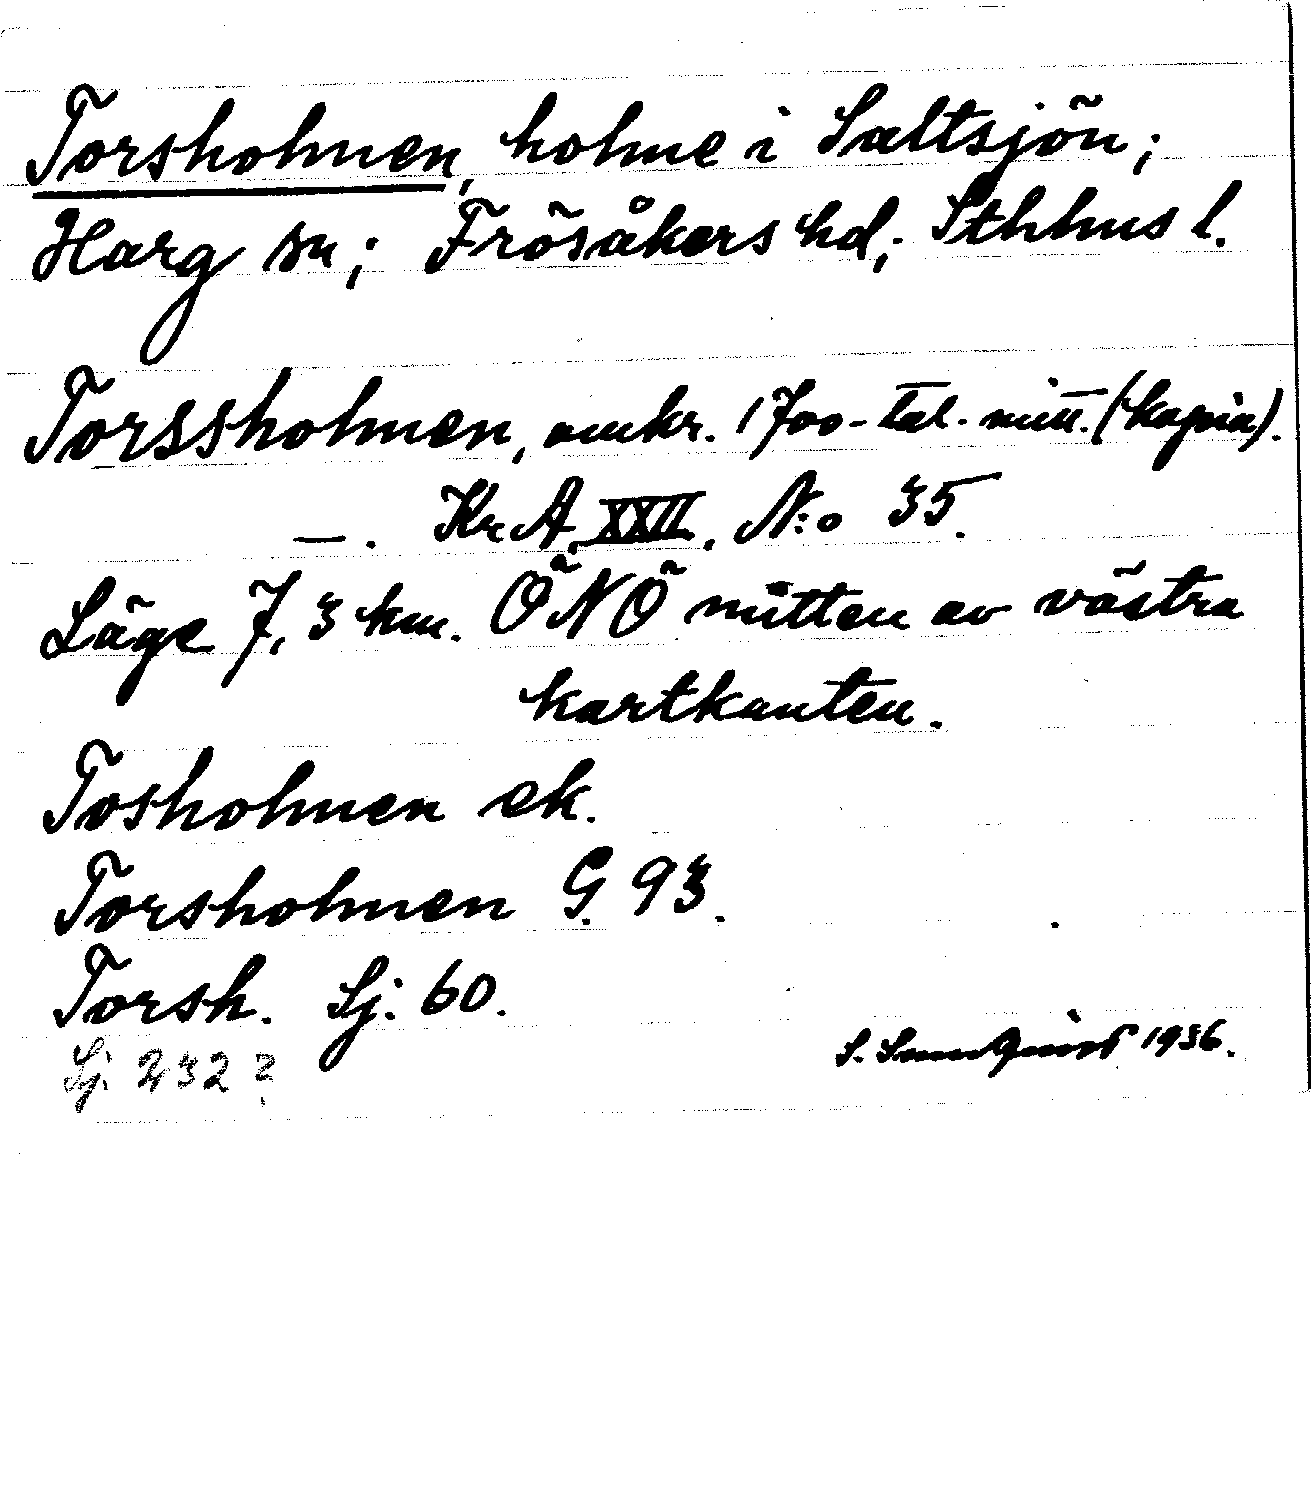 Torsholmen, holme i Saltsjön;
Harg sn; Frösåkers hd; Sthlms l.
Torssholmen, omkr. 1700-tal. mitt. (kopia).
—. Kr.A. XXII. N:o 35.
Läge 7,3 km. ÖNÖ mitten av västra
kartkanten.
Tosholmen ek.
Torsholmen G. 93.
Torsh. Sj. 60.
Sj. 232?
S. Sundquist 1936.